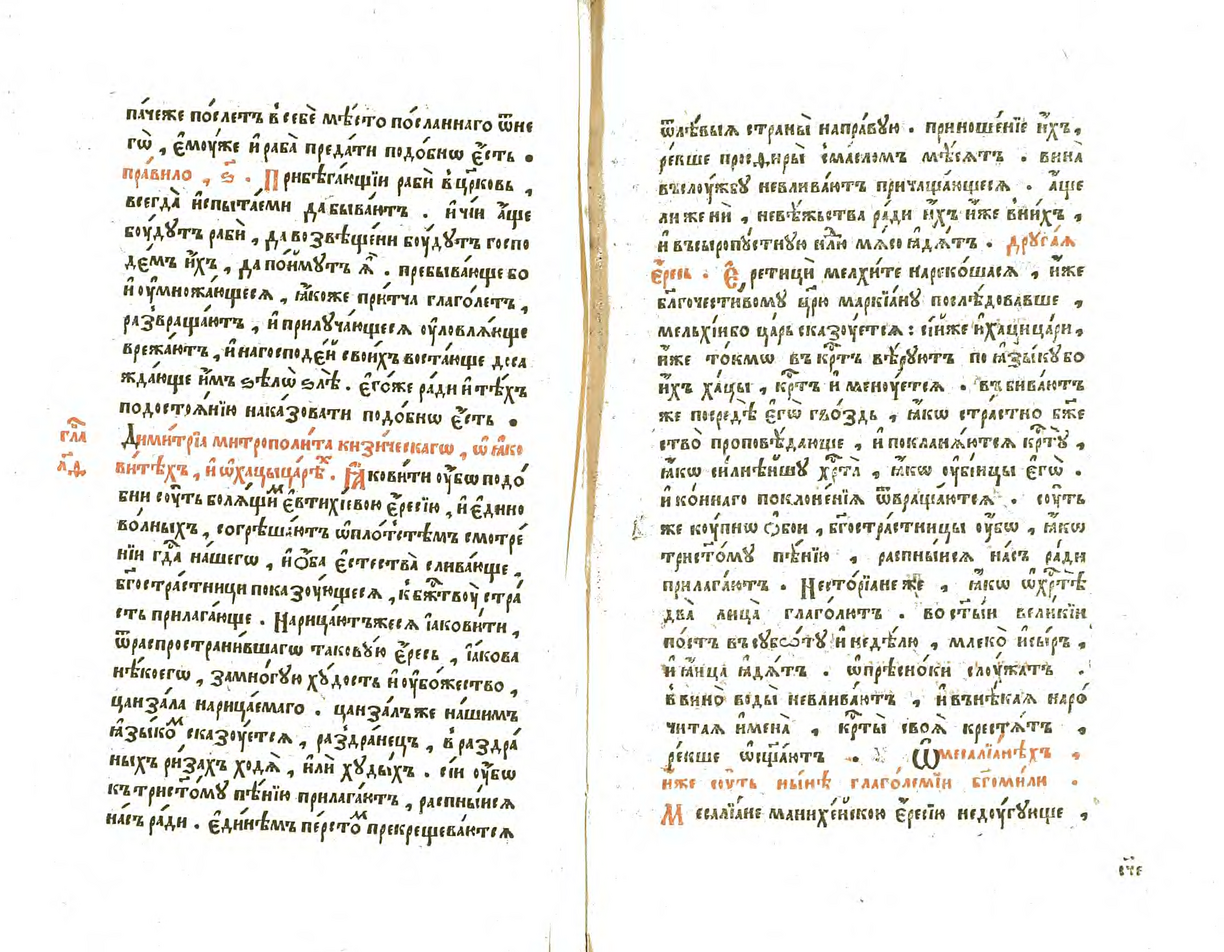 па́чеже по́слетъ в̾себѐ мѣ́сто по́сланнаго ѿне
гѡ̀ , є҆моу́же и҆ раба̀ преда́ти подо́бнѡ є҆́сть .
пра́вило , ѕ҃ . Прибѣга́ющїи рабѝ в̾цр҃ковь ,
всегда̀ и҆спыта́еми да быва́ютъ . и҆ чїѝ а҆́ще
боу́дутъ рабѝ , да возвѣще́ни боу́дутъ госпо
де́мъ и҆́хъ , да по́ймутъ ѧ҆̀ . пребыва́юще бо
и҆ оу҆множа́ющеесѧ , ꙗ҆́коже при́тча глаго́летъ ,
развраща́ютъ , и҆ прилуча́ющеесѧ оу҆ловлѧ́юще
врежа́ютъ , и҆ на господе́й свои́хъ воста́юще доса
жда́юще и҆̀мъ ѕѣлѡ̀ ѕлѣ̀ . є҆гѡ́же ради и҆ тѣ́хъ
по достоѧ́нїю наказова́ти подо́бнѡ є҆́сть .
гла̀
л҃ѳ
Дими́трїа митрополи́та кизи́ческагѡ , ѡ҆ ꙗ҆ко
ви́тѣхъ , и҆ ѡ҆ хацыца́рѣⷯ . Ꙗ҆кови́ти оу҆́бѡ подо́
бни соу́ть болѧ́щиⷨ є҆втихі́евою є҆́ресїю , и҆ є҆дино
во́лныхъ , согрѣша́ютъ ѡ҆ пло́тстѣмъ смотре́
нїи гдⷭ҇а на́шегѡ , и҆ ѻ҆́ба є҆стества̀ слива́юще ,
бг҃острастници показоу́ющеесѧ , к̾ бжⷭ҇твоу̀ стра́
сть прилага́юще . Нарица́ютъжеесѧ і҆акови́ти ,
ѿ распространи́вшагѡ такову́ю є҆́ресь , і҆а́кова
нѣ́коегѡ , за мно́гую ху́дость и҆ оу҆бо́жество ,
цанза́ла нарица́емаго . цанза́лъ же на́шимъ
ꙗ҆зы́коⷨ сказоу́етсѧ , раздра́нецъ , в̾ раздра́
ныхъ ри́захъ ходѧ̀ , и҆лѝ худы́хъ . сїѝ оу҆́бѡ
къ трист҃о́му пѣ́нїю прилага́ютъ , распны́исѧ
на́съ ра́ди . є҆ди́нѣмъ пе́рстоⷨ прекрещева́ютсѧ
ѿ лѣ́выѧ страны̀ на пра́вую . приноше́нїе и҆́хъ ,
ре́кше просфиры̀ с̾ма́сломъ мѣ́сѧтъ . вина̀
въ слоу́жбу не влива́ютъ причаща́ющеесѧ . а҆́ще
ли же нѝ , невѣ́жьства ра́ди и҆́хъ и҆́же в̾ни́хъ ,
и҆ въ сыропу́стную нлⷣю мѧ́со ꙗ҆дѧ́тъ . друга́ѧ
є҆́ресь . Є҆ретицѝ мелхи́те нареко́шасѧ , и҆́же
бл҃гочести́вому цр҃ю маркїа́ну послѣ́довавше ,
мельхі́и бо ца́рь сказоу́етсѧ : сїи́же и҆ хацица́ри ,
и҆́же то́кмѡ въ крⷭ҇тъ вѣ́руютъ по ꙗ҆зы́ку бо
и҆́хъ ха́цы , крⷭ҇тъ и҆менꙋ́етсѧ . въбива́ютъ
же посредѣ̀ є҆гѡ̀ гво́здь , ꙗ҆́кѡ стра́стно бж҃е
ство̀ проповѣ́дающе , и҆ покланѧ́ютсѧ крⷭ҇тꙋ̀ ,
ꙗ҆́кѡ си́лнѣйшу хрⷭ҇та̀ , ꙗ҆́кѡ оу҆бі́йцы є҆гѡ̀ .
и҆ ко́ннаго поклоне́нїѧ ѿвраща́ютсѧ . соу́ть
же коу́пнѡ ѻ҆́бои , бг҃острастницы оу҆́бѡ , ꙗ҆́кѡ
трист҃о́му пѣ́нїю , распны́исѧ на́съ ра́ди
прилага́ютъ . Несторїа́не же , ꙗ҆́кѡ ѡ҆ хрⷭ҇тѣ̀
два̀ лица̀ глаго́лютъ . во ст҃ы́и вели́кїи
по́стъ въ суббѡ́ту и҆ недѣ́лю , млеко̀ и҆ сы́ръ ,
и҆ ꙗ҆́ица ꙗ҆дѧ́тъ . ѡ҆прѣсно́ки слоу́жатъ .
в̾ вино̀ воды̀ не влива́ютъ , и҆ въ нѣ́каѧ наро
чи́таѧ и҆мена̀ , крⷭ҇ты̀ своѧ̀ крестѧ́тъ ,
ре́кше ѡ҆сщ҃а́ютъ . Ѡ҆ месалїа́нѣхъ ,
и҆́же соу́ть ны́нѣ глаго́лемїи бг҃оми́ли .
Месалїа́не манихе́йскою є҆́ресїю недоу́гующе ,